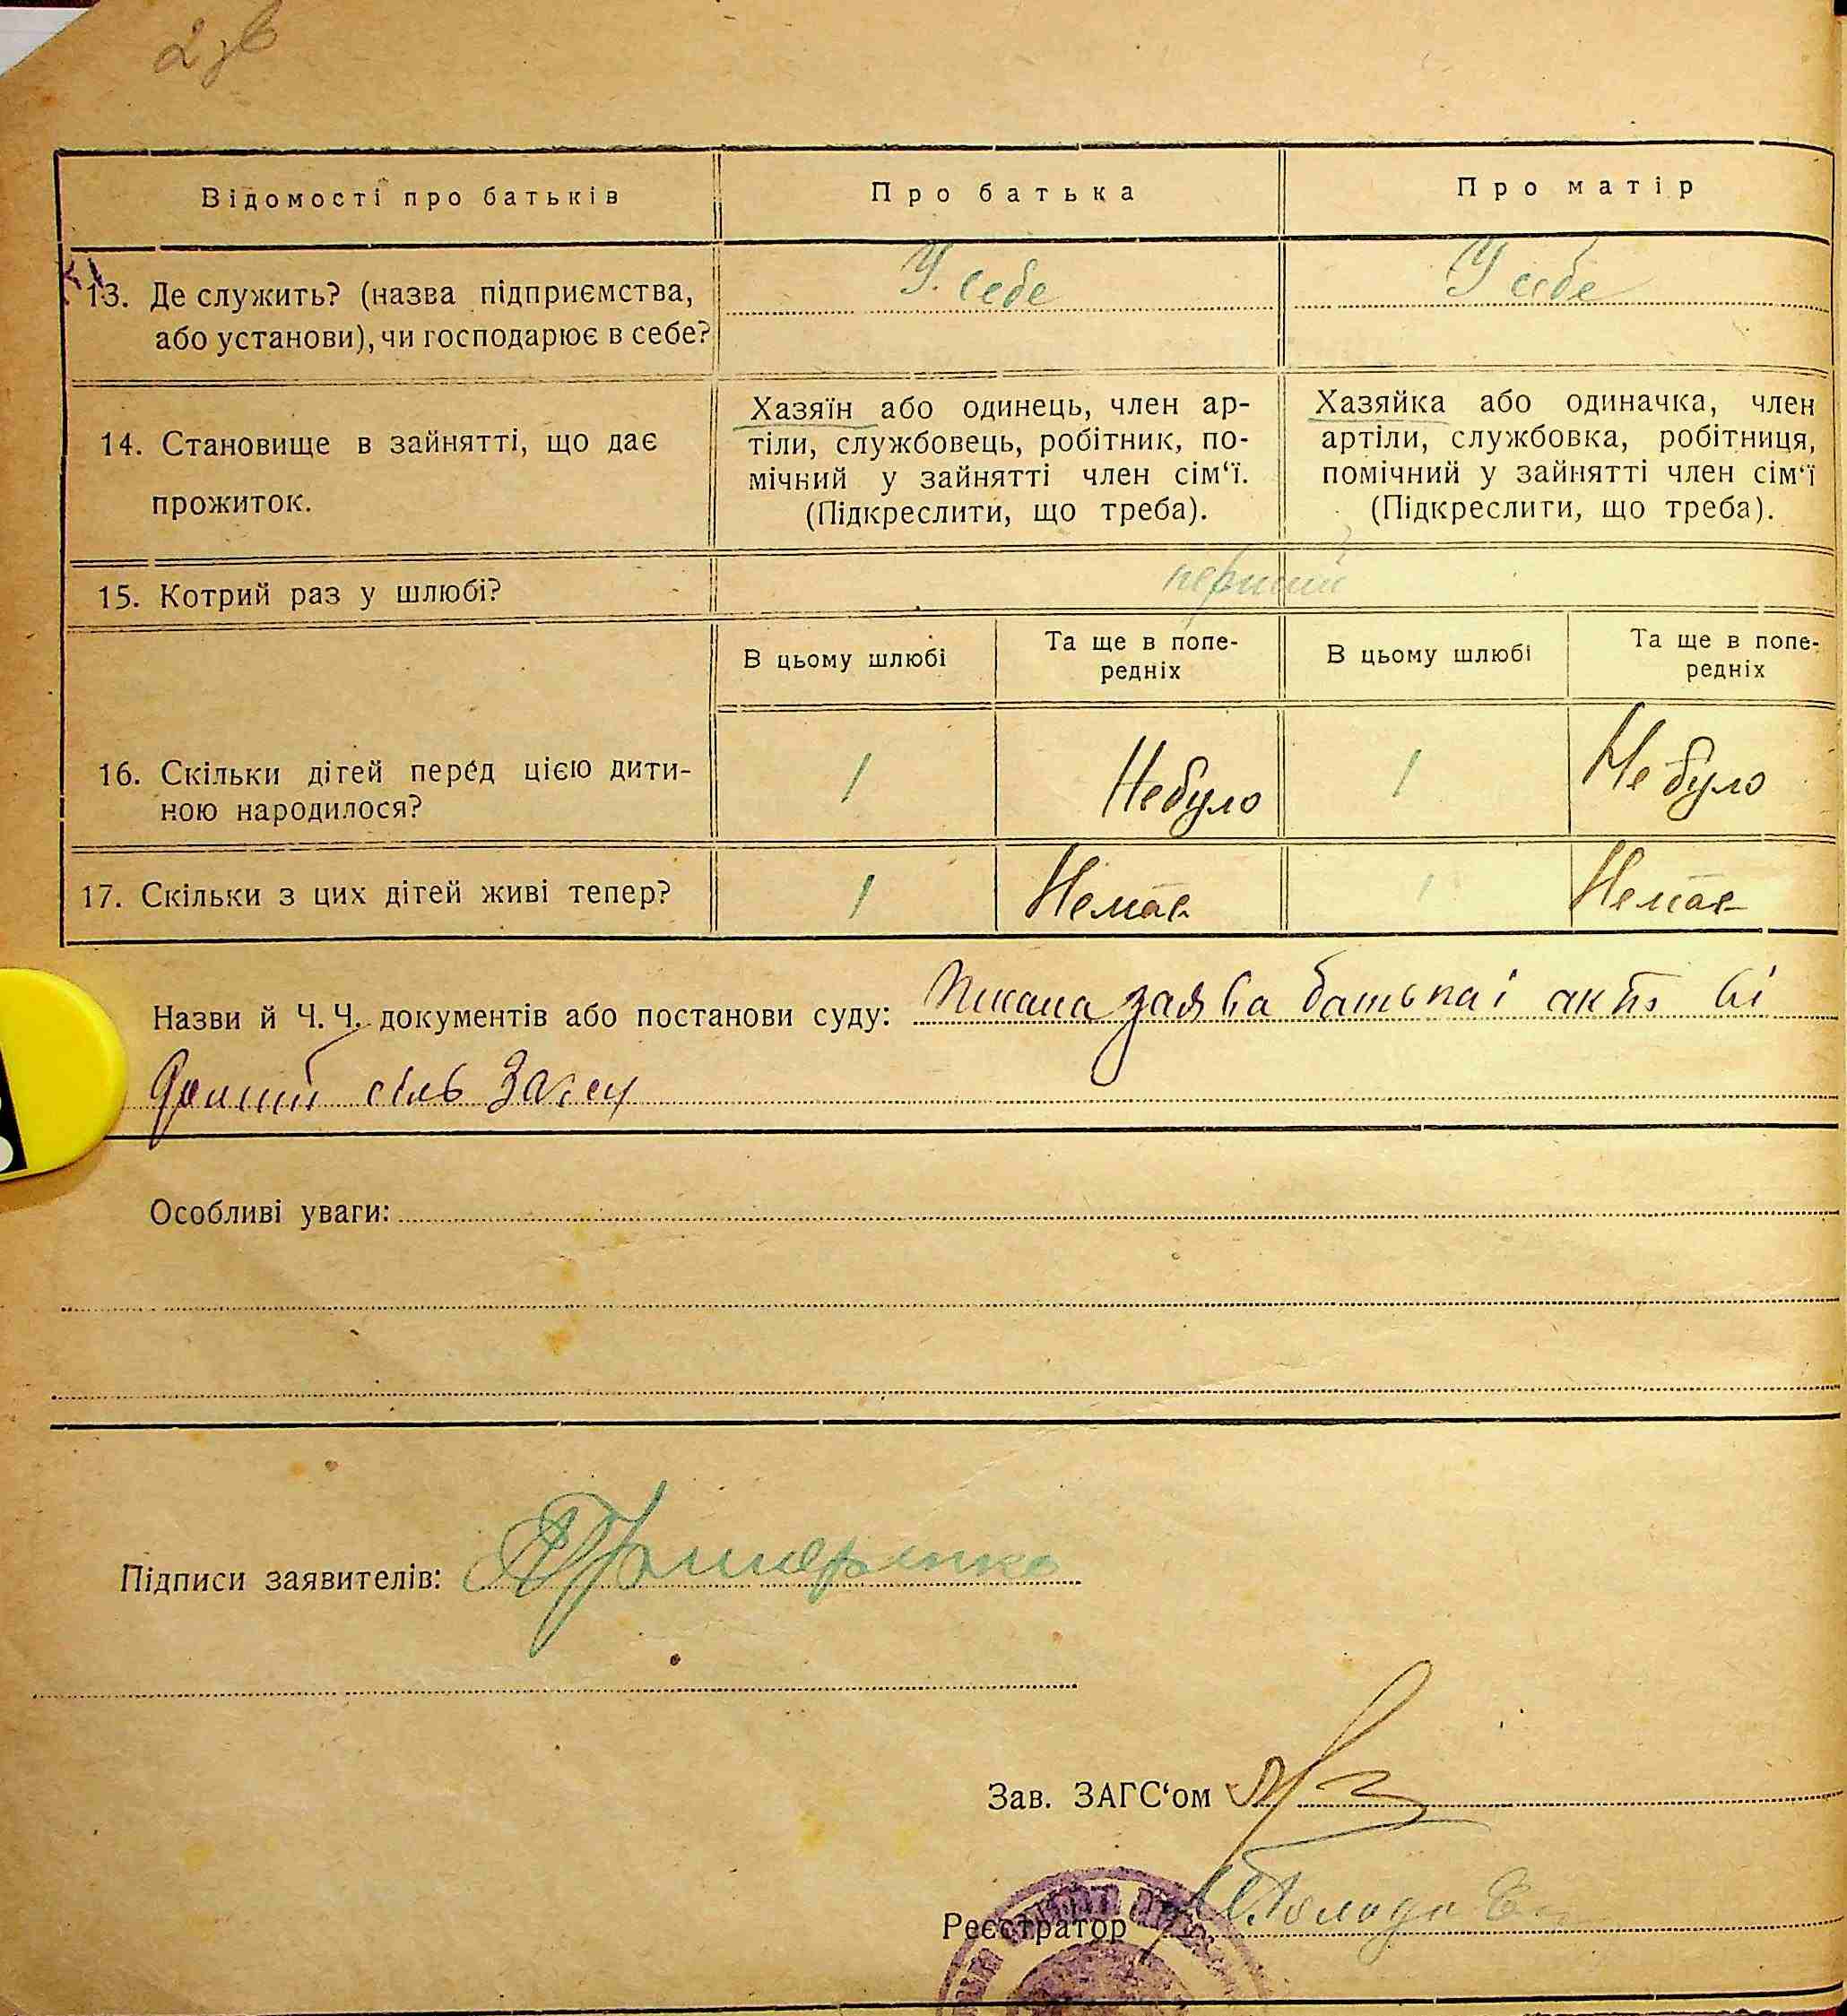 2 зв
Відомості про батьків
Про батька
Про матір
13. Де служить? (назва підприємства, або установи), чи господарює в себе?
У себе
У себе
14. Становище в зайнятті, що дає прожиток.
Хазяїн або одинець, член ар-
тіли, службовець, робітник, по-
мічний у зайнятті член сім‘ї.
(Підкреслити, що треба).
Хазяйка або одиначка, член
артіли, службовка, робітниця,
помічний у зайнятті член сім‘ї
(Підкреслити, що треба).
15. Котрий раз у шлюбі?
перший
В цьому шлюбі
Та ще в попе-
редніх
В цьому шлюбі
Та ще в попе-
редніх
16. Скільки дітей перед цією дити-
ною народилося?
1
Небуло
1
Не було
17. Скільки з цих дітей живі тепер?
1
Немає
1
Немає
Назви й Ч. Ч. документів або постанови суду: заява батька і акт
сіль Загсу
Особливі уваги:
Підписи заявителів:
Зав. ЗАГС‘ом
Реєстратор